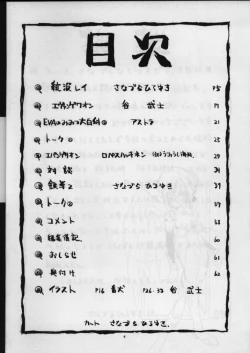 目次
綾波レイ さなづらひろゆき P5
エヴァンゲリオン 台 武士 17
EVAのみみつ大百科 アストラ 21
トーク① 25
エヴァンゲリオン 29
対談 34
さなづら ひろゆき 39
トーク② 57
コメント 58
編集後記 60
おしらせ 61
奥付け 62
イラスト P16 P26・33 台 武士
カット さなづら ひろゆき.